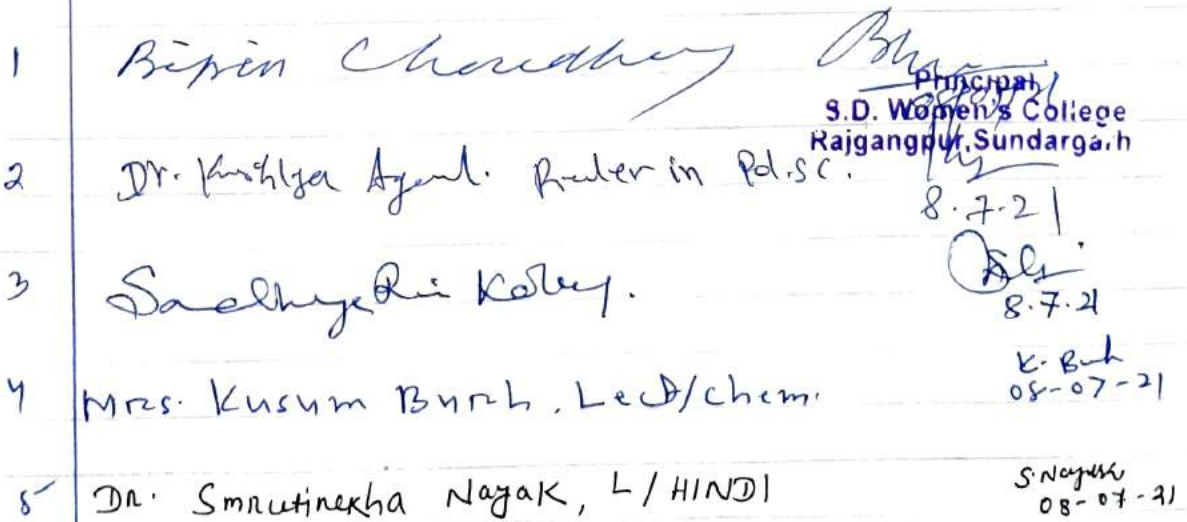 1 Bipin Choudhury
Principal
S.D. Women's College
Rajgangpur, Sundargarh
2 Dr. Agarwal. Reader in Pol.sc.
8.7.21
3 Sandhya Rani
8.7.21
4 Mrs. Kusum Burh, Lect/chem. K. Burh
08-07-21
5 Dr. Smrutirekha Nayak, L/HINDI S. Nayak
08-07-21